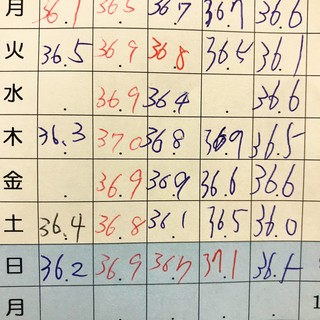 月 36.1 36.5 36.7 36.7 36.6
火 36.5 36.9 36.8 36.5 36.1
水 . 36.9 36.4 . 36.6
木 36.3 37.0 36.8 36.9 36.5
金 . 36.9 36.9 36.6 36.6
土 36.4 36.8 36.1 36.5 36.0
日 36.2 36.9 36.7 37.1 36.5
月 . . . . . 1